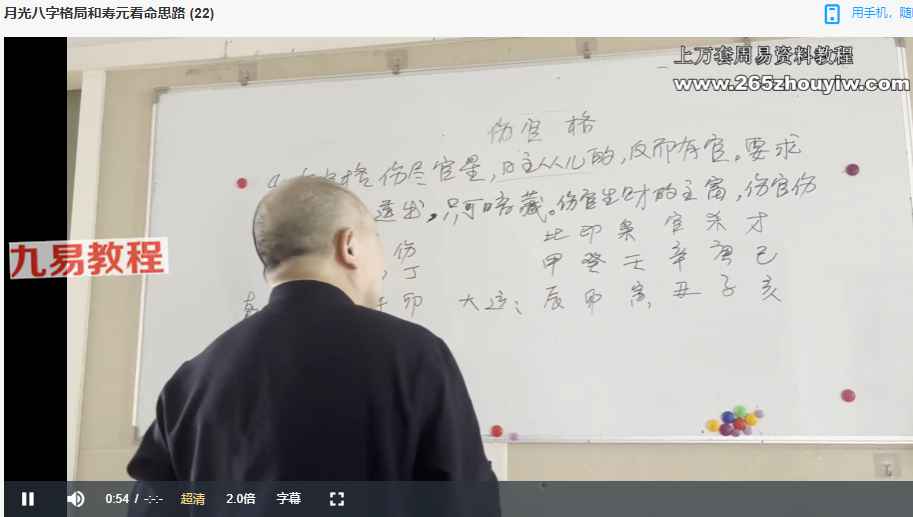 月光八字格局和寿元看命思路 (22)
用手机，随
上万套周易资料教程
www.265zhouyiw.com
伤官 格
伤尽官星，日主从儿的，反而存官。要求
透出，只可暗藏。伤官生财的主富，伤官伤
伤 比 印 枭 官 杀 才
丁 甲 癸 壬 辛 庚 己
卯 大运： 辰 卯 寅 丑 子 亥
九易教程
0:54 / -:-:-
超清
2.0倍
字幕